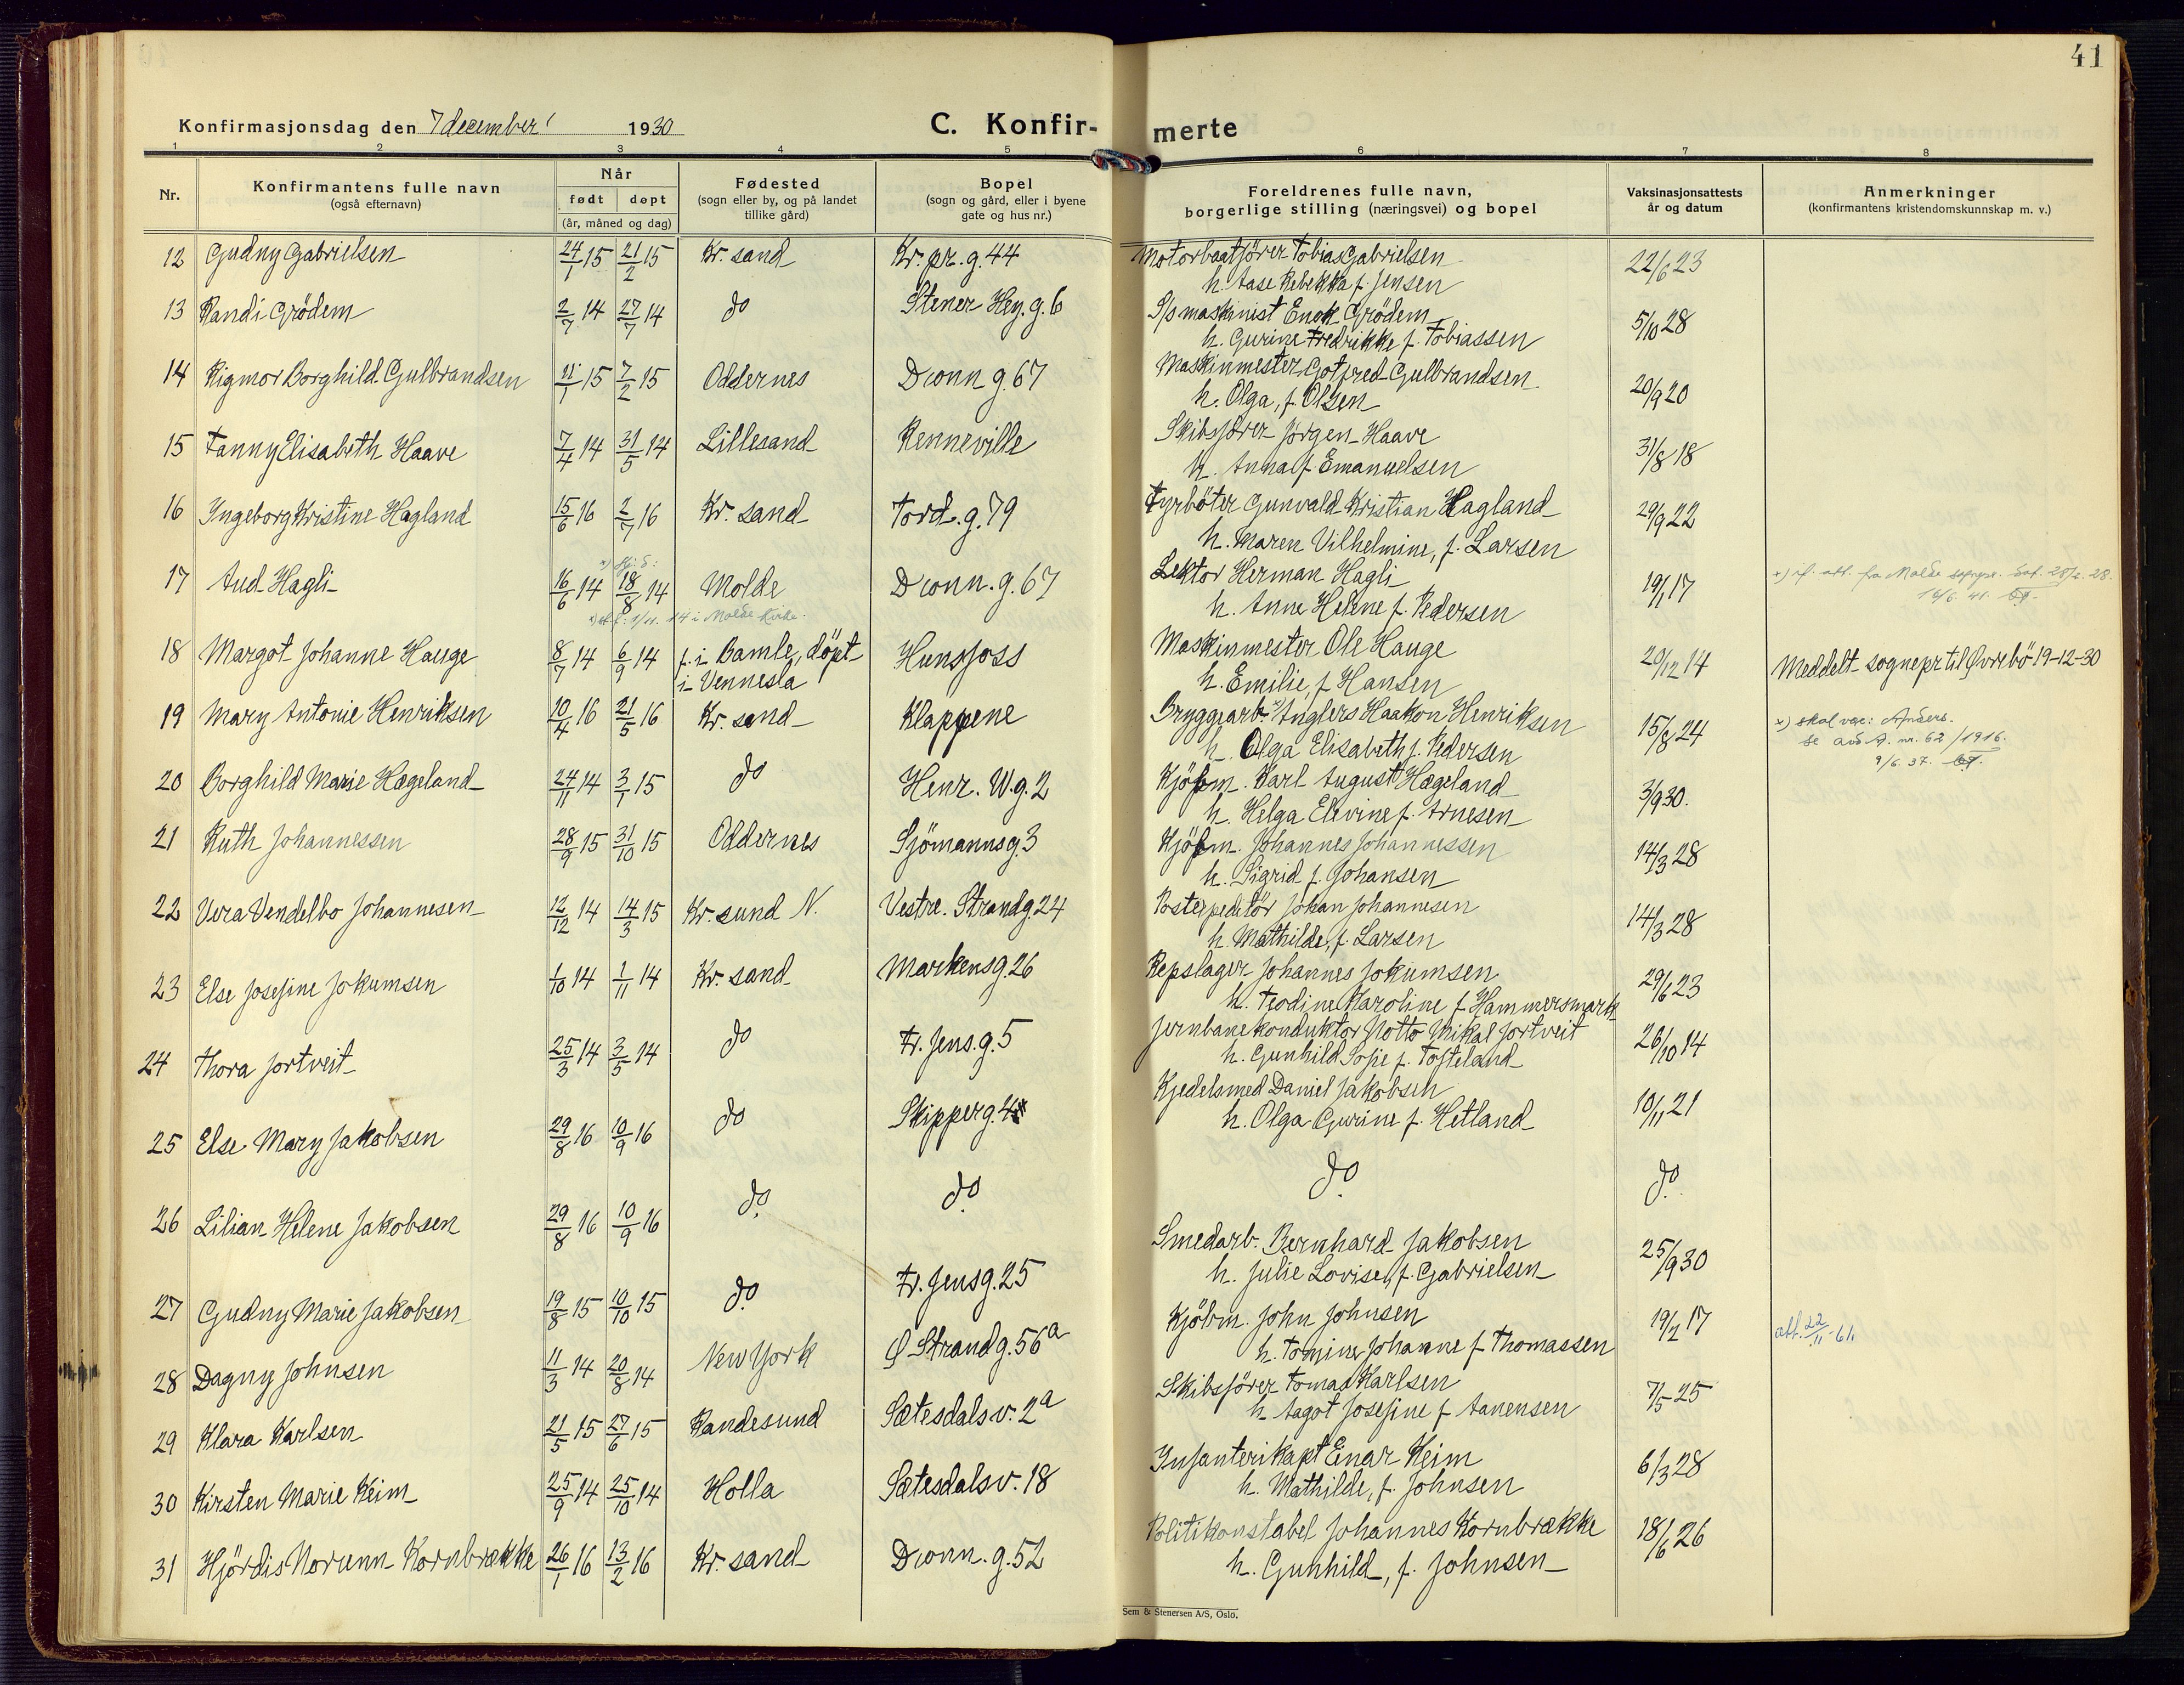 41
Konfirmasjonsdag den 7 december 1930
C. Konfirmerte
1 2 3 4 5 6 7 8
Nr.
Konfirmantens fulle navn
(også efternavn)
Når
født døpt
(år, måned og dag)
Fødested
(sogn eller by, og på landet
tillike gård)
Bopel
(sogn og gård, eller i byene
gate og hus nr.)
Foreldrenes fulle navn,
borgerlige stilling (næringsvei) og bopel
Vaksinasjonsattests
år og datum
Anmerkninger
(konfirmantens kristendomskunnskap m. v.)
12 Gudny Gabrielsen 24/1 15 21/2 15 Kr. sand Kr. pr. g. 44 Motorbaatförer Tobias Gabrielsen 22/6 23
h. Aase Rebekka f. Jensen
13 Randi Grödem 2/7 14 27/7 14 do Stener Hey. g. 6 S/s maskinist Enok Grödem 5/10 28
h. Gurine Fredrikke f. Tobiassen
14 Rigmor Borghild Gulbrandsen 11/1 15 7/2 15 Oddernes Dronn g. 67 Maskinmester Gotfred Gulbrandsen 20/9 20
h. Olga, f. Olsen
15 Fanny Elisabeth Haave 7/4 14 31/5 14 Lillesand Renneville Skibsförer Jörgen Haave 31/8 18
h. Anna f. Emanuelsen
16 Ingeborg Kristine Hagland 15/6 16 2/7 16 Kr. sand Tord. g. 79 Fyrböter Gunvald Kristian Hagland 29/9 22
h. Maren Vilhelmine, f. Larsen
17 Aud Hagli 16/6 14 18/8 14 Molde Dronn. g. 67 Lektor Herman Hagli 19/1 17
h. Anne Helene f. Pedersen
18 Margot Johanne Hauge 8/7 14 6/9 14 f. i Bamle, döpt i Vennesla Hunsfoss Maskinmester Ole Hauge 20/12 14 Meddelt sognepr til Øvrebö 19-12-30
h. Emilie, f Hansen
19 Mary Antonie Henriksen 20/4 16 21/5 16 Kr. sand Klappene Bryggearb. x) Anglers Haakon Henriksen 15/8 24 x) skal være: Anders.
h. Olga Elisabeth f. Pedersen se avd A. nr. 62/1916.
9/6. 37.
20 Borghild Marie Hægeland 24/11 14 3/1 15 do Henr. W. g. 2 Kjöbm. Karl August Hægeland 3/9 30.
h. Helga Elevine f. Arnesen
21 Ruth Johannessen 28/9 15 31/10 15 Oddernes Sjömannsg. 3 Kjöbm. Johannes Johannessen 14/3 28
h. Sigrid f. Johansen
22 Vera Vendelbo Johannesen 12/12 14 14/3 15 Kr. sund N. Vestre. Strandg. 24 Postexpeditör Johan Johannesen 14/3 28
h. Mathilde, f. Larsen
23 Else Josefine Jokumsen 1/10 14 1/11 14 Kr. sand Markensg. 26 Repslager Johannes Jokumsen 29/6 23
h. Teodine Karoline f Hammersmark
24 Thora Jortveit 25/3 14 3/5 14 do Fr. Jens. g. 5 Jernbanekonduktör Notto Mikal Jortveit 26/10 14
h. Gunhild Sofie f. Tofteland
25 Else Mary Jakobsen 29/8 16 10/9 16 do Skipperg. 4 Kjedelsmed Daniel Jakobsen 10/11 21
h. Olga Gurine f. Hetland
26 Lilian Helene Jakobsen 29/8 16 10/9 16 do. do. do. do.
27 Gudny Marie Jakobsen 19/8 15 10/10 15 do. Fr. Jensg. 25 Smedarb. Bernhard Jakobsen 25/9 30
h. Julie Lovise, f. Gabrielsen
28 Dagny Johnsen 11/3 14 20/8 14 New York Ø Strandg. 56a Kjöbm. John Johnsen 19/2 17 att. 22/11-61.
h. Tomine Johanne f Thomassen
29 Klara Karlsen 21/5 15 27/6 15 Randesund Sætesdalsv. 2a Skibsförer Tomas Karlsen 7/5 25
h. Aagot Josefine f Aanensen
30 Kirsten Marie Keim 25/9 14 25/10 14 Holla Sætesdalsv. 18 Infanterikapt Einar Keim 6/3 28
h. Mathilde, f. Johnsen
31 Hjördis Norunn Kornbrække 26/1 16 13/2 16 Kr. sand Dronn. g. 52 Politikonstabel Johannes Kornbrække 18/6 26
h. Gunhild, f. Johnsen
Sem & Stenersen A/S, Oslo.